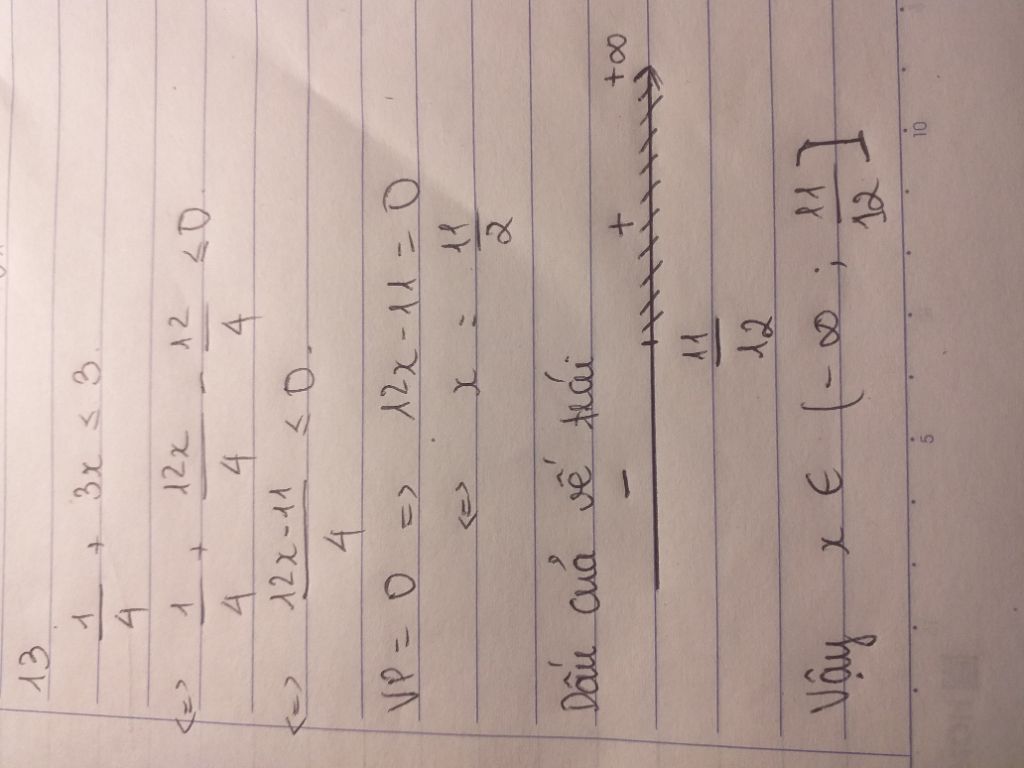 13
1/4 + 3x ≤ 3.
<=> 1/4 + 12x/4 - 12/4 ≤ 0.
<=> 12x - 11/4 ≤ 0.
VP = 0 => 12x - 11 = 0
<=> x = 11/2
Dấu cuả vế trái
- + +∞
11/12
Vậy x ∈ (-∞; 11/12]
5 10